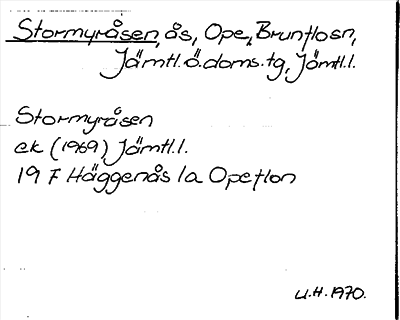 Stormyråsen, ås, Ope, Brunflosn,
Jämtl.ö.doms.tg, Jämtl.l.
Stormyråsen
ek (1969), Jämtl.l.
19 F Häggenås 1a Opeflon
U.H. 1970.